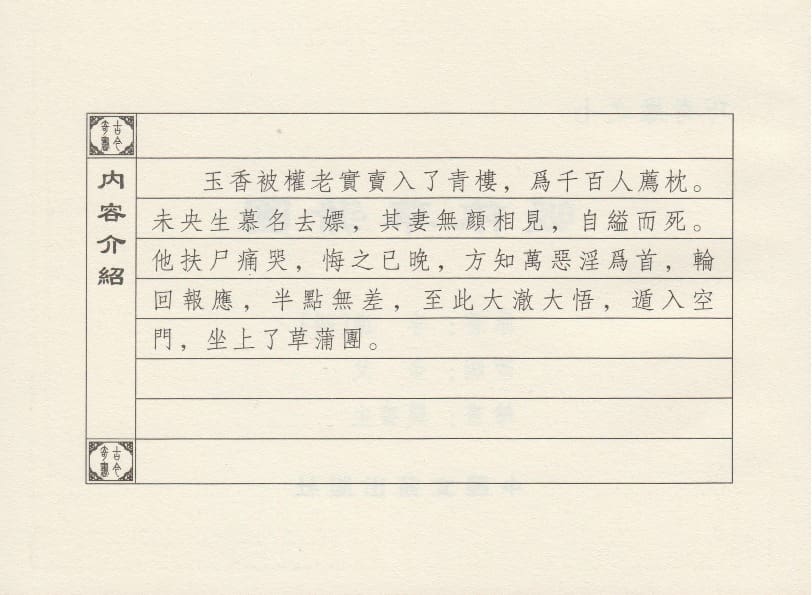 古今奇書
內容介紹
玉香被權老實賣入了青樓，爲千百人薦枕。
未央生慕名去嫖，其妻無顔相見，自縊而死。
他扶尸痛哭，悔之已晚，方知萬惡淫爲首，輪
回報應，半點無差，至此大澈大悟，遁入空
門，坐上了草蒲團。
古今奇書